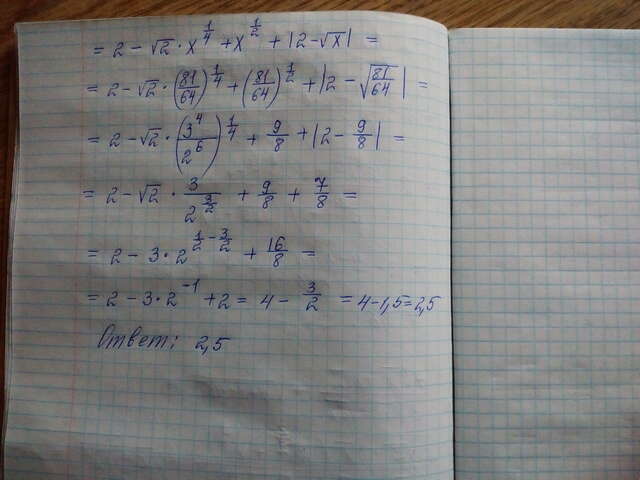 = 2 - √2 · x^(1/4) + x^(1/2) + |2 - √x| =
= 2 - √2 · (81/64)^(1/4) + (81/64)^(1/2) + |2 - √(81/64)| =
= 2 - √2 · (3^4/2^6)^(1/4) + 9/8 + |2 - 9/8| =
= 2 - √2 · 3/2^(3/2) + 9/8 + 7/8 =
= 2 - 3 · 2^(1/2 - 3/2) + 16/8 =
= 2 - 3 · 2^(-1) + 2 = 4 - 3/2 = 4 - 1,5 = 2,5
Ответ: 2,5